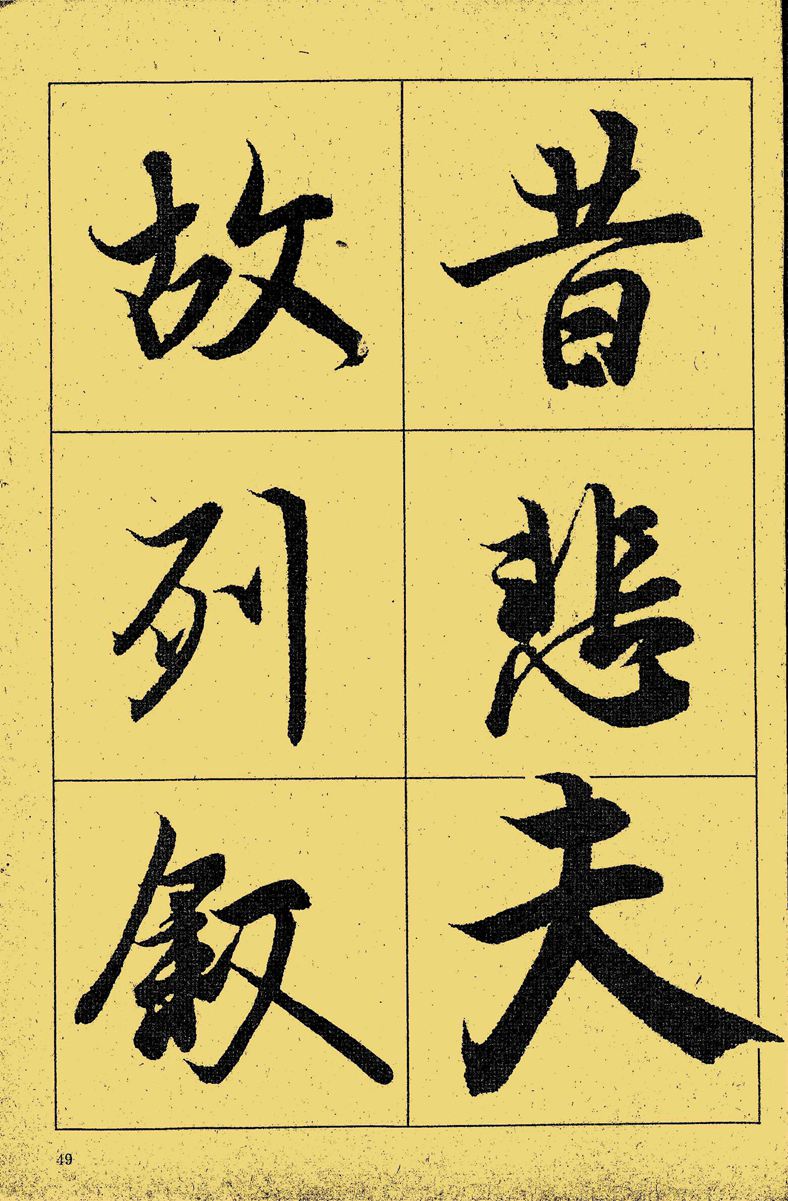 昔悲夫
故列叙
49